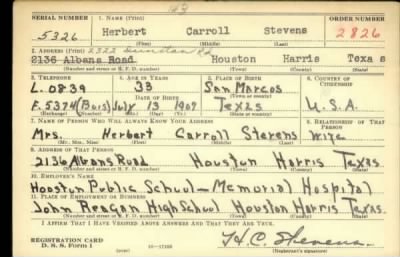 SERIAL NUMBER 1. NAME (Print) ORDER NUMBER
5326 Herbert Carroll Stevens 2826
(First) (Middle) (Last)
2. ADDRESS (Print) 2322 Dunstan Rd
2136 Albans Road Houston Harris Texas
(Number and street or R. F. D. number) (Town) (County) (State)
3. TELEPHONE 4. AGE IN YEARS 5. PLACE OF BIRTH 6. COUNTRY OF CITIZENSHIP
L.0839 33 San Marcos
DATE OF BIRTH (Town or county)
F.5374 (Bus) July 13 1907 Texas U.S.A.
(Exchange) (Number) (Mo.) (Day) (Yr.) (State or country)
7. NAME OF PERSON WHO WILL ALWAYS KNOW YOUR ADDRESS 8. RELATIONSHIP OF THAT PERSON
Mrs. Herbert Carroll Stevens Wife
(Mr., Mrs., Miss) (First) (Middle) (Last)
9. ADDRESS OF THAT PERSON
2136 Albans Road Houston Harris Texas
(Number and street or R. F. D. number) (Town) (County) (State)
10. EMPLOYER'S NAME
Houston Public School - Memorial Hospital
11. PLACE OF EMPLOYMENT OR BUSINESS
John Reagan High School Houston Harris Texas
(Number and street or R. F. D. number) (Town) (County) (State)
I AFFIRM THAT I HAVE VERIFIED ABOVE ANSWERS AND THAT THEY ARE TRUE.
REGISTRATION CARD
D. S. S. Form 1 (over) H. C. Stevens
(Registrant's signature)